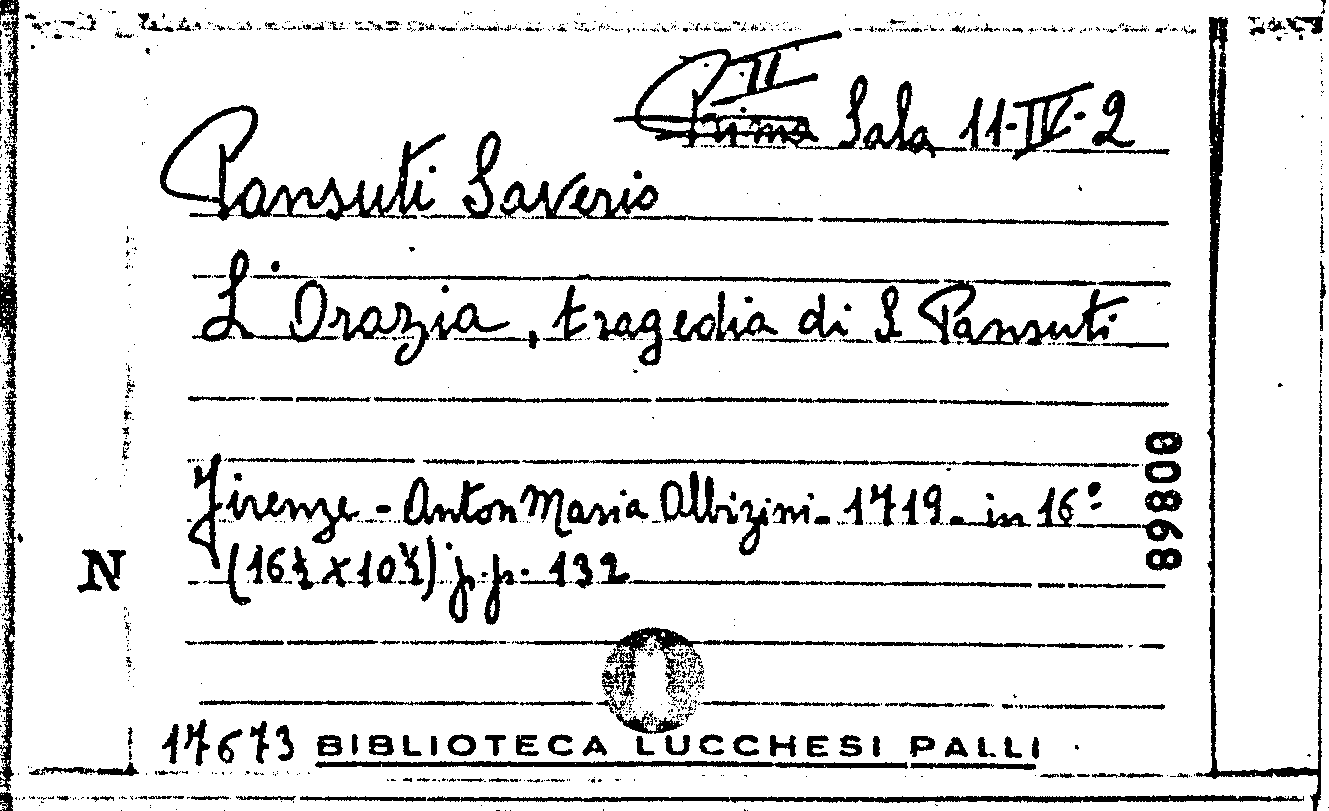 II
Prima Sala 11-IV-2
Pansuti Saverio
L'Orazia, tragedia di S Pansuti
Firenze - Anton Maria Albizini - 1719 - in 16º
(16½ X 10½) p.p. 132
N
17673 BIBLIOTECA LUCCHESI PALLI
89800